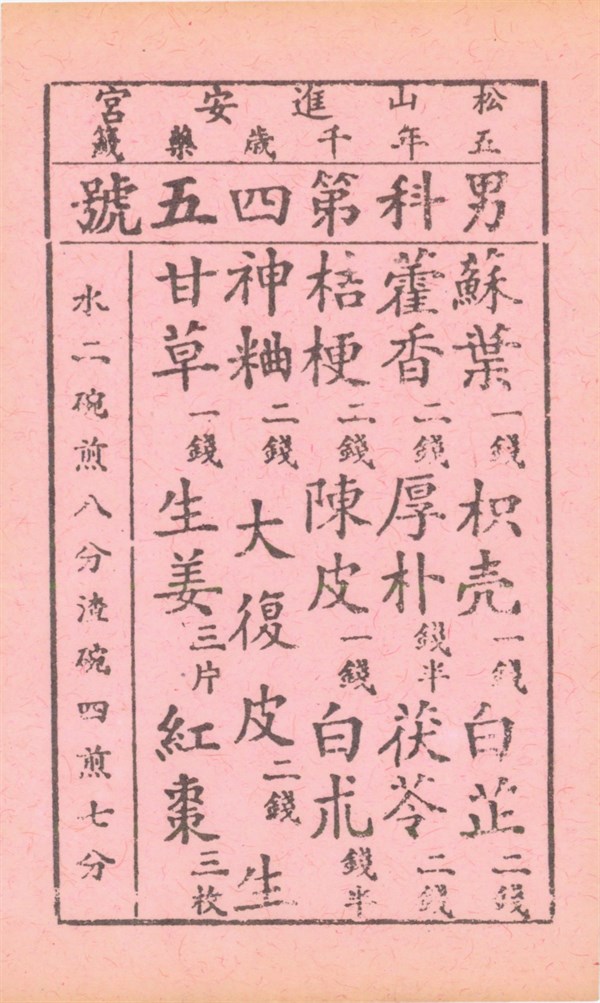 松山進安宮
五年千歲藥籤
男科第四五號
蘇葉一錢 枳壳一錢 白芷二錢
藿香二錢 厚朴錢半 茯苓二錢
桔梗二錢 陳皮一錢 白朮錢半
神粬二錢 大復皮二錢 生
甘草一錢 生姜三片 紅棗三枚
水二碗煎八分渣碗四煎七分